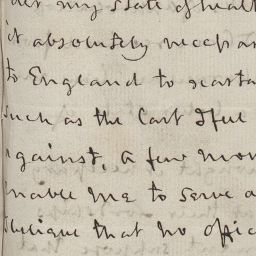 my state of healt
it absolutely necessar
to England to
such as the last I feel
against, a few mon
inable me to serve a
that no offic